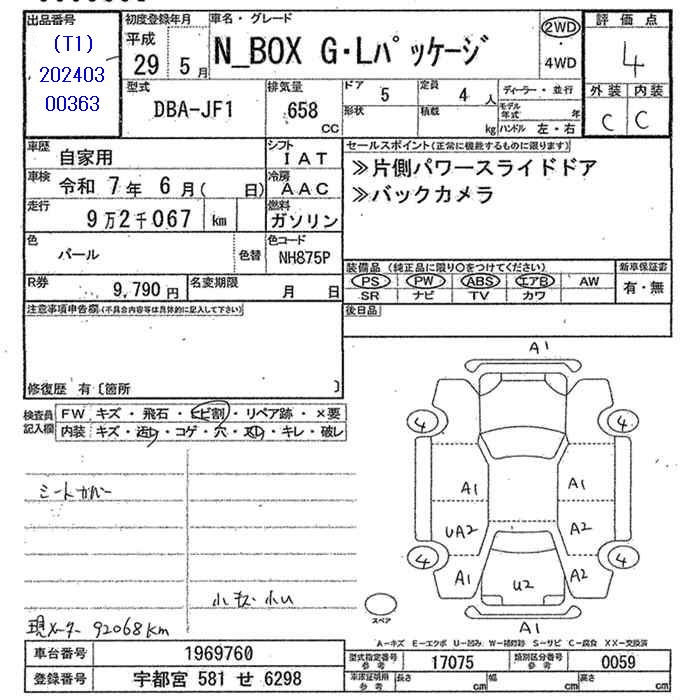 出品番号
(T1)
202403
00363
初度登録年月
平成
29 5月
車名・グレード
N_BOX G・Lパッケージ
2WD
・
4WD
評価点
4
外装 内装
C C
型式
DBA-JF1
排気量
658
cc
ドア 5
形状
定員 4 人
積載 kg
ディーラー・並行
モデル年式 年
ハンドル 左・右
車歴 自家用
シフト IAT
車検 令和 7年 6月( 日)
冷房 AAC
走行 9万2千067 km
燃料 ガソリン
色 パール
色替
色コード NH875P
R券 9,790 円
名変期限 月 日
セールスポイント(正常に機能するものに限ります)
≫片側パワースライドドア
≫バックカメラ
装備品(純正品に限り○をつけてください)
PS PW ABS エアB AW
SR ナビ TV カワ
新車保証書
有・無
後日品
注意事項申告欄(不具合内容等は具体的に記入して下さい)
修復歴 有〔箇所 〕
検査員
記入欄
FW キズ・飛石・ヒビ割・リペア跡・×要
内装 キズ・汚レ・コゲ・穴・スレ・キレ・破レ
シートカバー
小キズ・小U
現メーター 92068km
A1
4 4
A1 A1
UA2 A2
4 4
A1 U2 A2
A1
スペア
A−キズ E−エクボ U−凹み W−補修跡 S−サビ C−腐食 XX−交換済
車台番号 1969760
登録番号 宇都宮 581 せ 6298
型式指定番号
参考
17075
類別区分番号
参考
0059
車庫証明用
参考
長さ cm 幅 cm 高さ cm